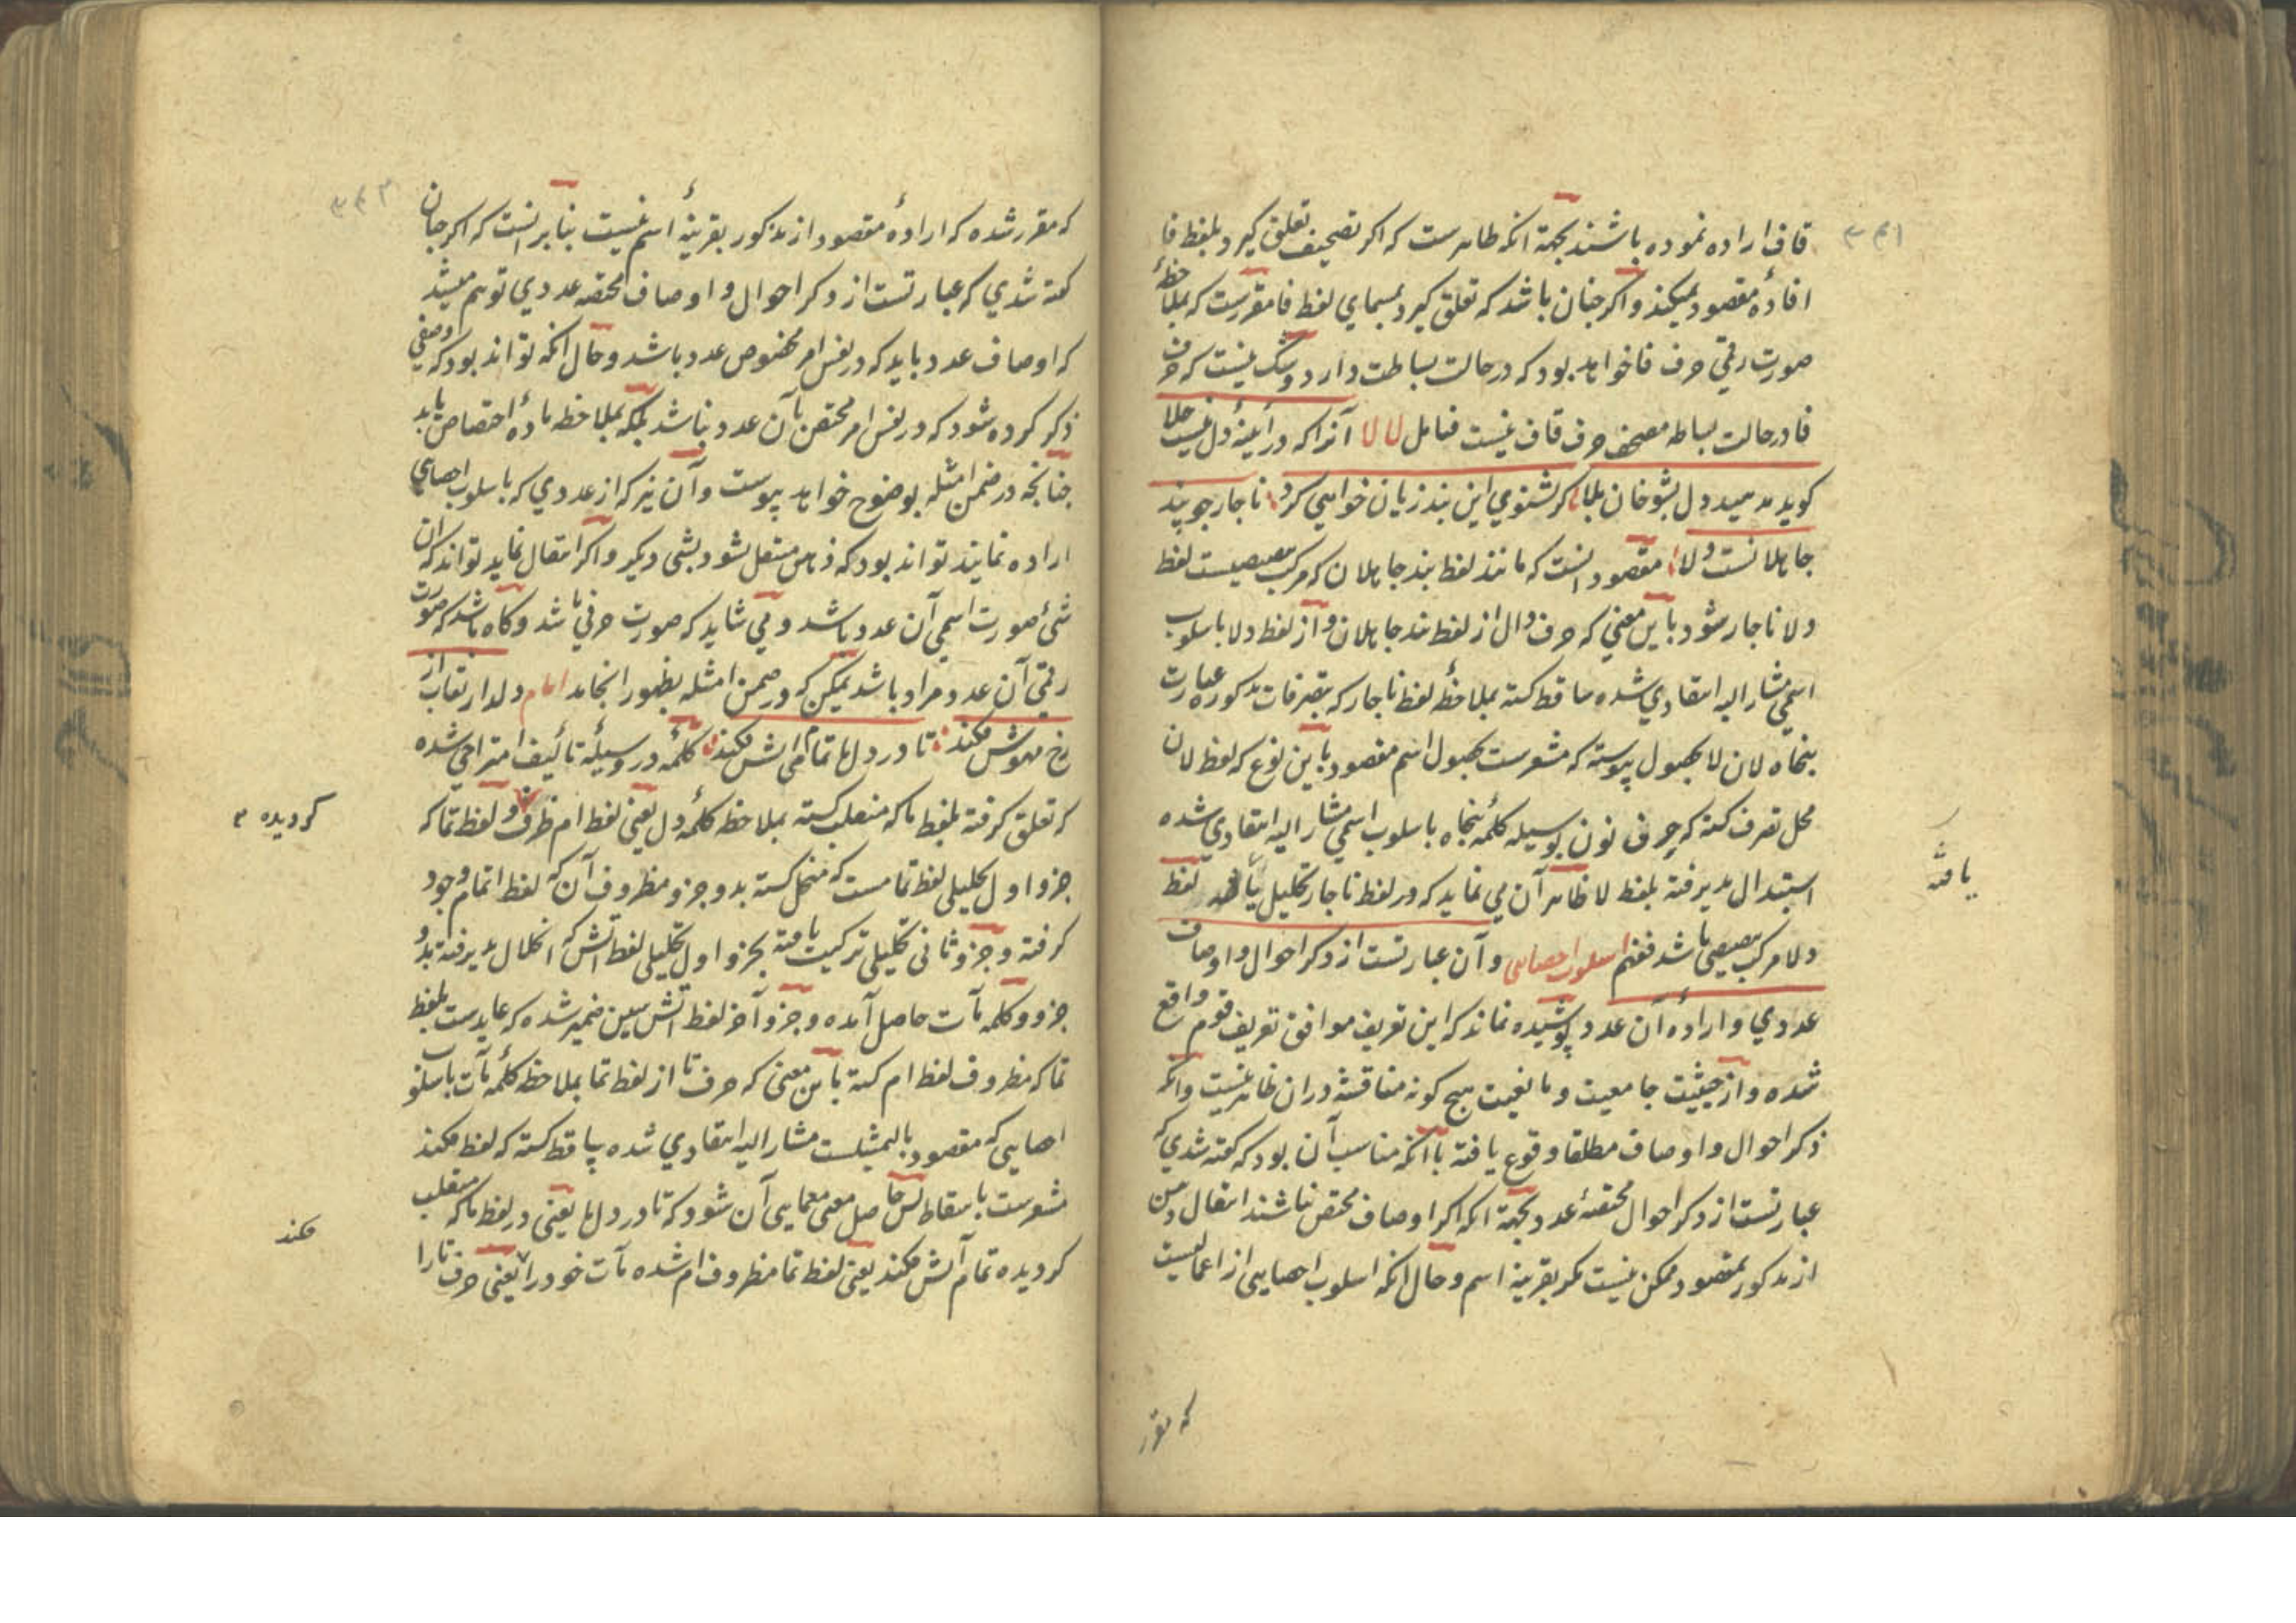 ۳۴۱
قاف اراده نموده باشند بجهة انکه ظاهرست که اکر تصحیف تعلق کیرد بلفظ فا
افادۀ مقصود نمیکند و اکر جنان باشد که تعلق کیرد بمسمای لفظ فا مقررست که بملاحظۀ
صورت رقمی حرف فا خواهد بود که در حالت بساطت دارد و شک نیست که حرف
فا در حالت بساطه مصحف حرف قاف نیست فتامل لا لا آنرا که در آینۀ دل نیست جلا
کوید دل بشو خان بلا کر نشنوی این بند زیان خواهی کرد ناجار جو بند
جاهلانست ولا مقصود انست که مانند لفظ بند جاهلان که مرکب تبعیضیست لفظ
ولا ناجار شود باین معنی که حرف دال از لفظ بند جاهلان و از لفظ دلا باسلوب
اسمی مشار الیه انتقادی شده ساقط کشته بملاحظۀ لفظ ناجار که بتصرفات مذکوره عبارت
بنجاه لان لا بحصول پیوسته که مشعرست بحصول اسم مقصود باین نوع که لفظ لان
محل تصرف کشته که حرف نون بوسیله کلمۀ بنجاه باسلوب اسمی مشار الیه انتقادی شده
استبدال پذیرفته بلفظ لا ظاهر آن می نماید که در لفظ ناجار تحلیل یافته لفظ
یافته
ولا مرکب تبعیضی باشد فافهم اسلوب احصایی و آن عبارتست از ذکر احوال و اوصاف
عددی و ارادۀ آن عدد پوشیده نماند که این تعریف موافق تعریف قوم واقع
شده و از حیثیت جامعیت و مانعیت هیچ کونه مناقشه دران ظاهر نیست وانکه
ذکر احوال و اوصاف مطلقا وقوع یافته با انکه مناسب آن بود که کفته شدی که
عبارتست از ذکر احوال مختصۀ عدد بجهة انکه اکر اوصاف مختص نباشند انتقال ذهن
از مذکور بمقصود ممکن نیست مکر بقرینۀ اسم و حال انکه اسلوب احصایی از اعمالیست
که مقرر
۳۴۲
که مقرر شده که ارادۀ مقصود از مذکور بقرینۀ اسم نیست بنابر انست که اکر جنان
کفته شدی که عبارتست از ذکر احوال و اوصاف مختصه عددی توهم میشد
که اوصاف عدد باید که در نفس امر مخصوص عدد باشد و حال انکه تواند بود که وصفی
ذکر کرده شود که در نفس امر مختص بآن عدد نباشد بلکه بملاحظه ماده اختصاص یابد
جنانجه در ضمن امثله بوضوح خواهد پیوست و آن نیز که از عددی که باسلوب احصایی
اراده نمایند تواند بود که ذهن منتقل نشود بشی دیکر و اکر انتقال نماید تواند که آن
شئ صورت اسمی آن عدد باشد و می شاید که صورت حرفی باشد و کاه باشد که صورت
رقمی آن عدد مراد باشد جنانکه در ضمن امثله بظهور انجامد امام دلدار نقاب از
رخ مهوش مکند تا در دل ما تمام آتش مکند کلمۀ در وسیلۀ تألیف امتزاجی شده
که تعلق کرفته بلفظ ما که منقلب کشته بملاحظه کلمۀ دل یعنی لفظ ام ظرف و لفظ تما که
کردیده
جزو اول تحلیلی لفظ تمامست که منحل کشته بدو جزو مظروف آن که لفظ اتمام وجود
کرفته و جزو ثانی تحلیلی ترکیب یافته بجزو اول تحلیلی لفظ اتش که انحلال پذیرفته بدو
جزو و کلمه مآت حاصل آمده و جزو آخر لفظ اتش شین ضمیر شده که عایدست بلفظ
تما که مظروف لفظ ام کشته باین معنی که حرف تا از لفظ تما بملاحظه کلمۀ مآت باسلوب
احصایی که مقصود بالتمثیلست مشار الیه انتقادی شده ساقط کشته که لفظ مکند
مشعرست باسقاط پس حاصل معنی معمایی آن شود که تا در دل ما یعنی در لفظ ما که منقلب
مکند
کردیده تمام آتش مکند یعنی لفظ تما مظروف ام شده مآت خود را یعنی حرف تا را